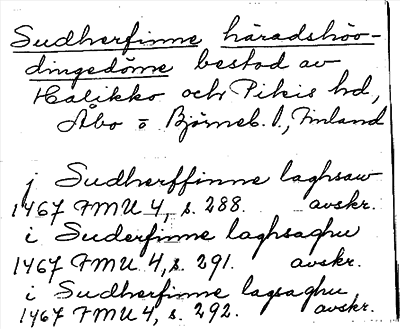 Sudherfinne häradshöv-
dingedöme bestod av
Halikko och Pikis hd,
Åbo o Björneb. l., Finland
j Sudherffinne laghsaw
1467 FMU 4, s. 288. avskr.
i Suderfinne laghsaghu
1467 FMU 4, s. 291. avskr.
i Sudherfinne lagsaghu
1467 FMU 4, s. 292. avskr.